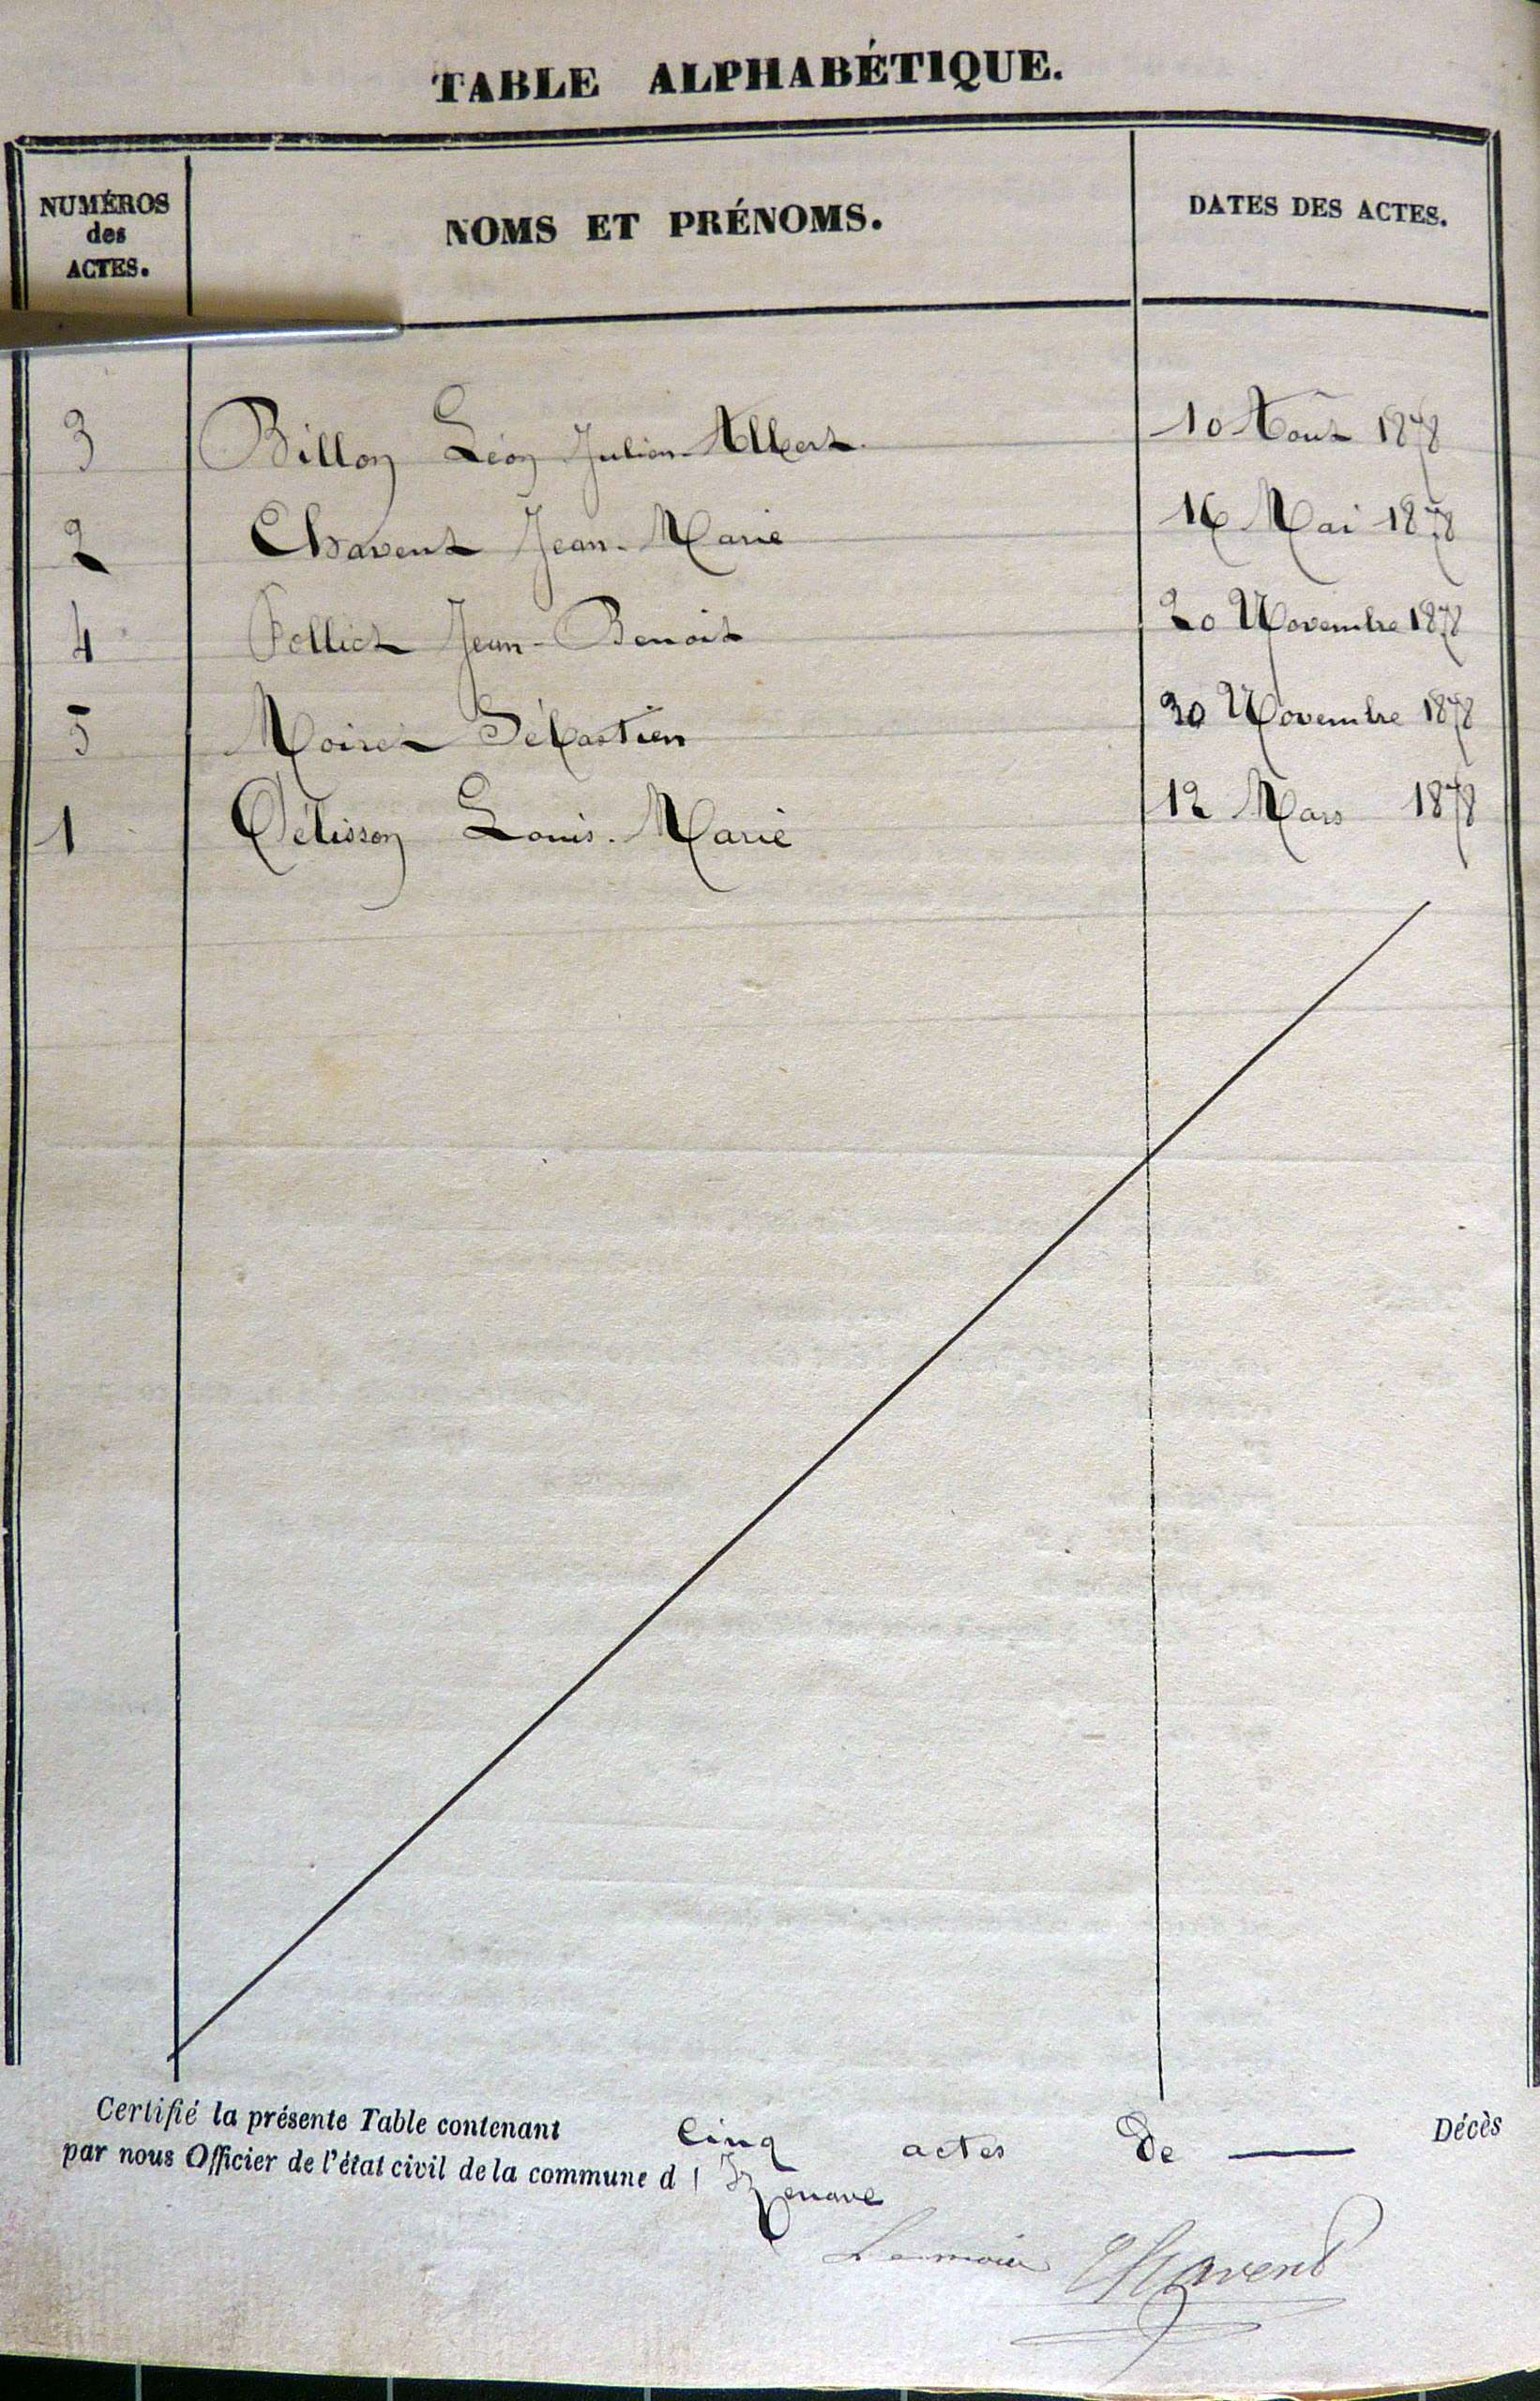 TABLE ALPHABÉTIQUE.
NUMÉROS
des
ACTES.
NOMS ET PRÉNOMS.
DATES DES ACTES.
3 Billon Léon Julien Albert. 10 Août 1878
2 Chavent Jean-Marie 16 Mai 1878
4 Folliet Jean-Benoit 20 Novembre 1878
5 Moiret Sébastien 30 Novembre 1878
1 Pélisson Louis-Marie 12 Mars 1878
Certifié la présente Table contenant Cinq actes de — Décès
par nous Officier de l'état civil de la commune d' Izenave
Le maire Chavent